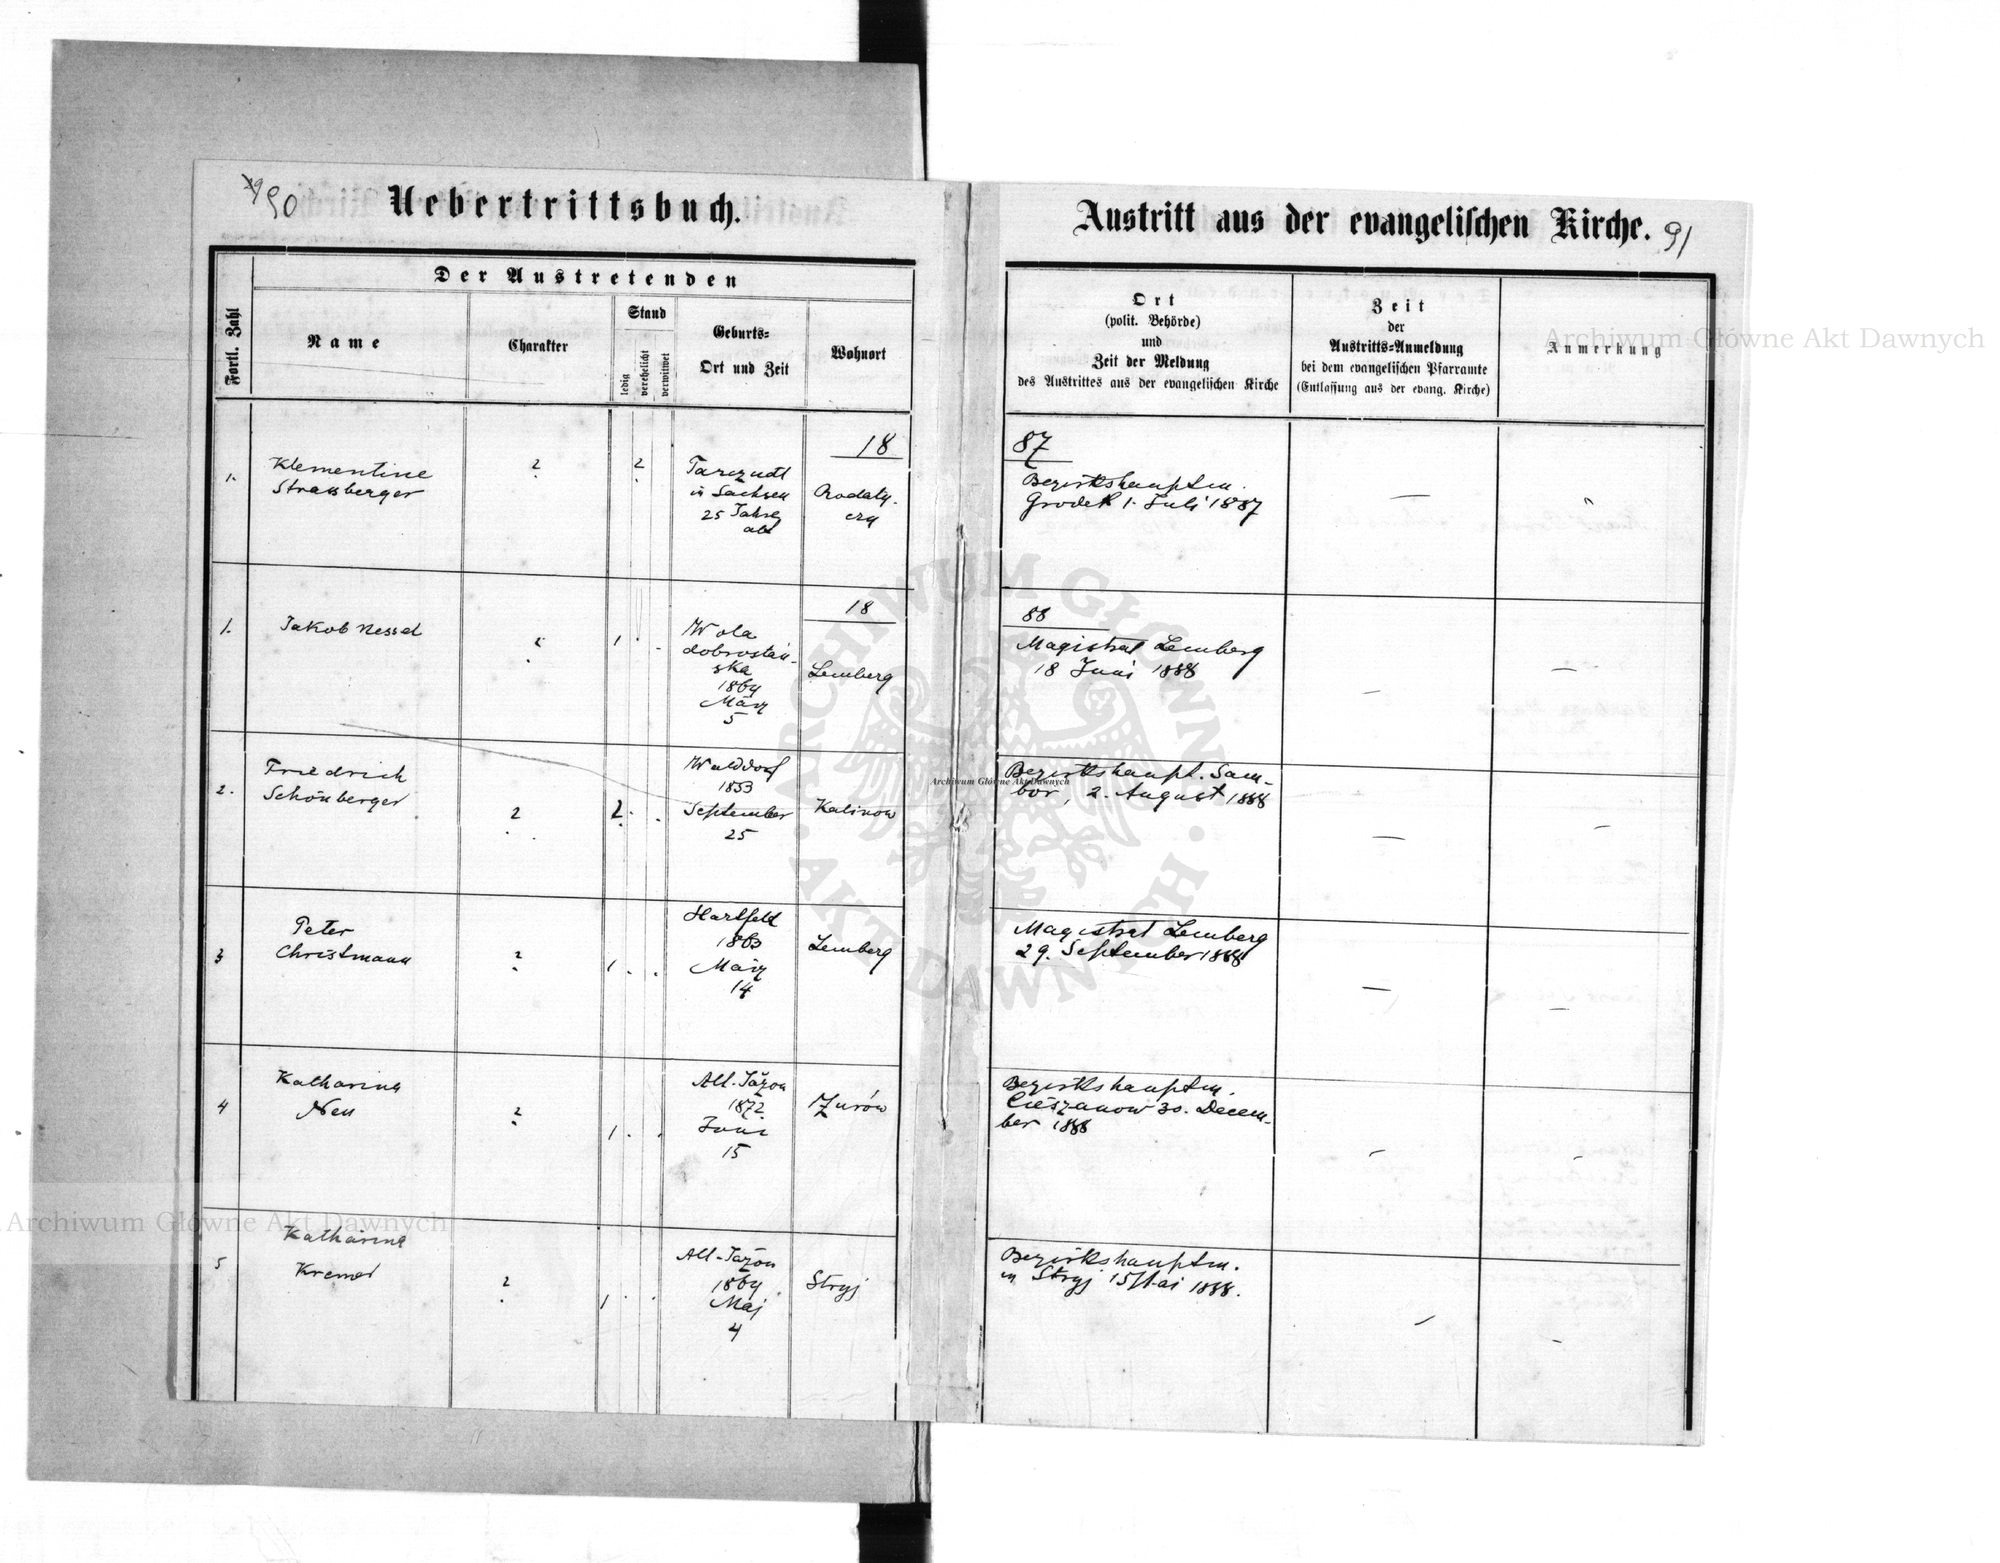 90
Uebertrittsbuch.
Der Austretenden
Fortl. Zahl
Name
Charakter
Stand
ledig
verehelicht
verwitwet
Geburts=
Ort und Zeit
Wohnort
18
1.
Klementine
Strassberger
?
?
in Sachsen
25 Jahre
alt
Rodaty-
czy
18
1.
Jakob Nessel
?
1
Wola
dobrostań-
ska
1864
März
5
Lemberg
2.
Friedrich
Schönberger
?
?
Walddorf
1853
September
25
Kalinow
3
Peter
Christmann
?
1
Hartfeld
1863
März
14
Lemberg
4
Katharina
Neu
?
1
Alt-Jażow
1872
Juni
15
Żurów
5
Katharina
Kremer
?
1
Alt-Jażow
1864
Maj
4
Stryj
Austritt aus der evangelischen Kirche.
91
Ort
(polit. Behörde)
und
Zeit der Meldung
des Austrittes aus der evangelischen Kirche
Zeit
der
Austritts=Anmeldung
bei dem evangelischen Pfarramte
(Entlassung aus der evang. Kirche)
Anmerkung
87
Bezirkshauptm.
Grodek 1. Juli 1887
—
88
Magistrat Lemberg
18 Juni 1888
—
—
Bezirkshaupt. Sam-
bor, 2. August 1888
—
—
Magistrat Lemberg
29. September 1888
—
—
Bezirkshauptm.
Cieszanow 30. Decem-
ber 1888
—
—
Bezirkshauptm.
in Stryj 15 Mai 1888.
—
—
Archiwum Główne Akt Dawnych
Archiwum Główne Akt Dawnych
Archiwum Główne Akt Dawnych
ARCHIWUM GŁÓWNE · AKT DAWNYCH ·